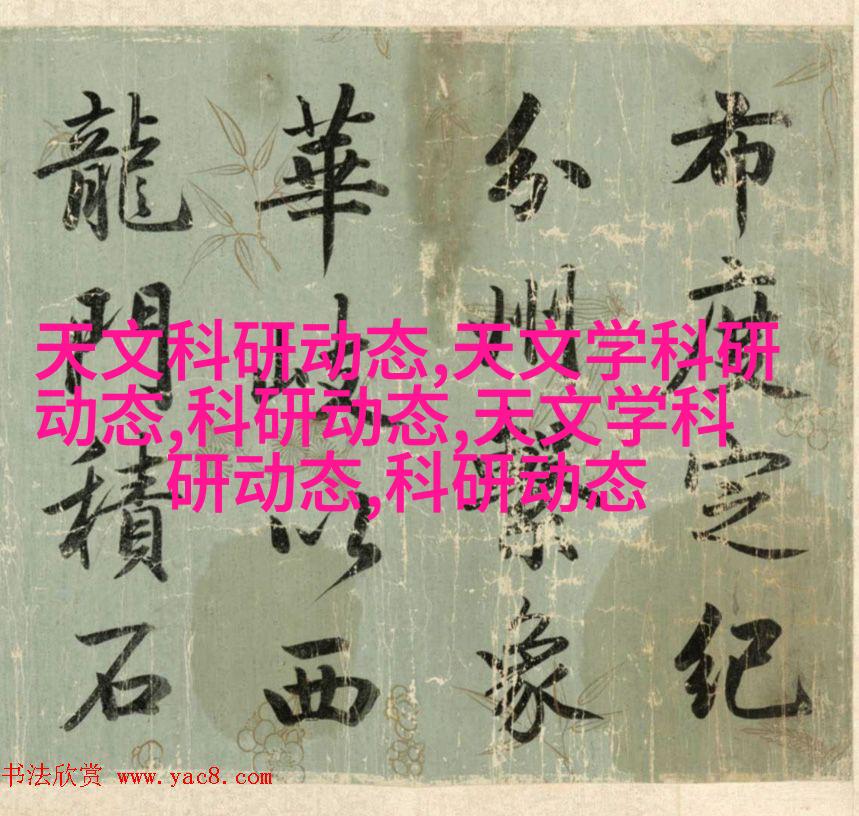 布度定紀
分州繫象
華以西
龍門積石
天文科研动态,天文学科研
动态,科研动态,天文学科
研动态,科研动态
书法欣赏 www.yac8.com